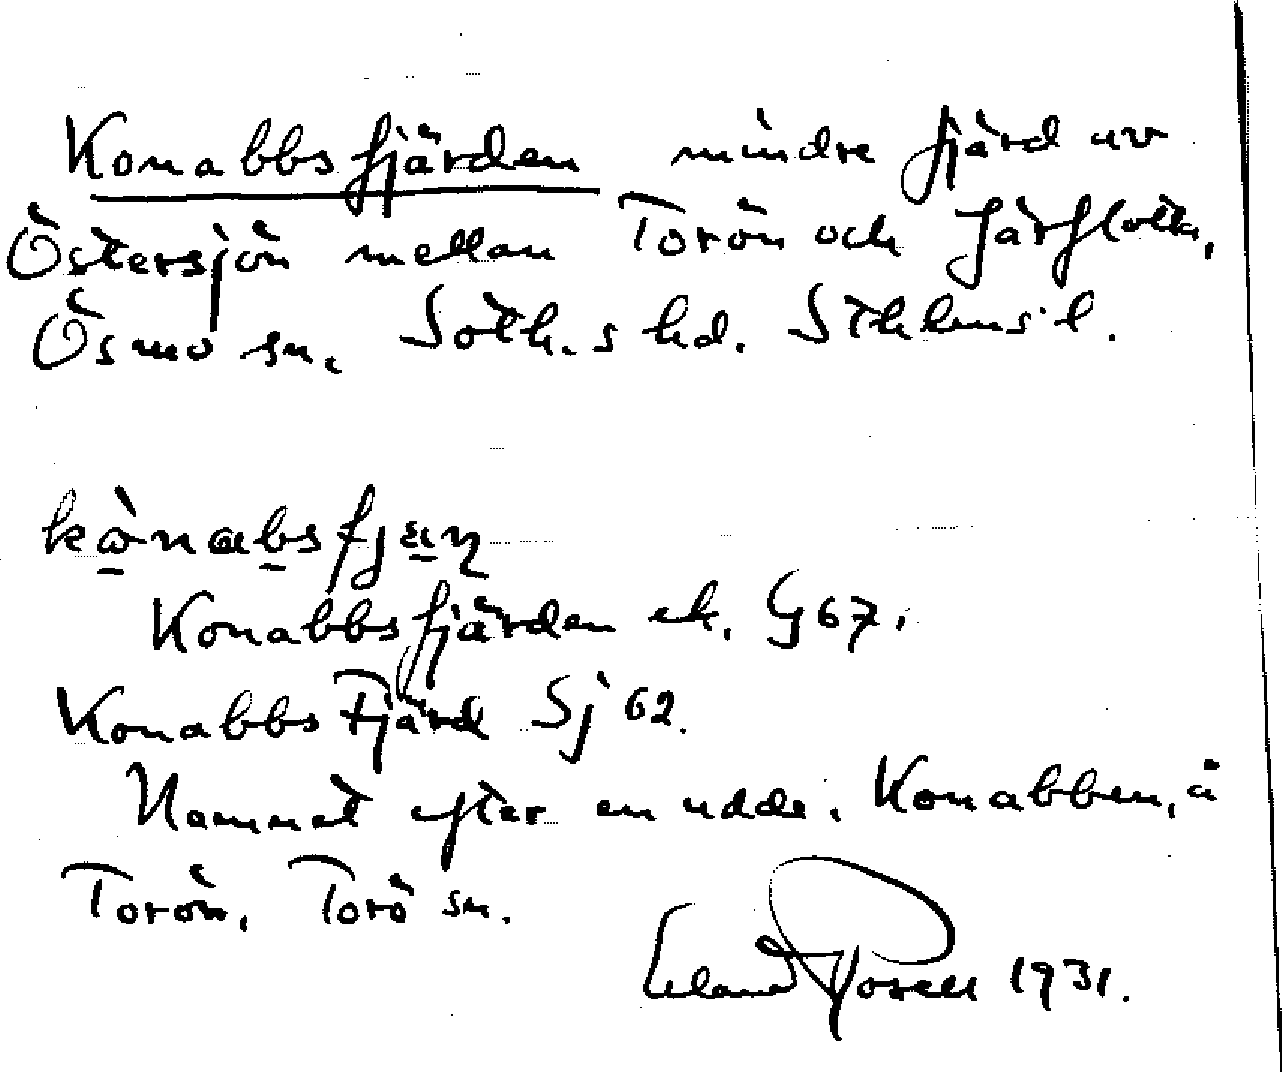 Konabbsfjärden mindre fjärd av
Östersjön mellan Torön och Järflotta,
Ösmo sn. Soth.s hd. Sthlms l.
Konabbsfjärden ek. G 67.
Konabbs Fjärd Sj 62.
Namnet efter en udde, Konabben, å
Torön, Torö sn.
Erland Rosell 1931.